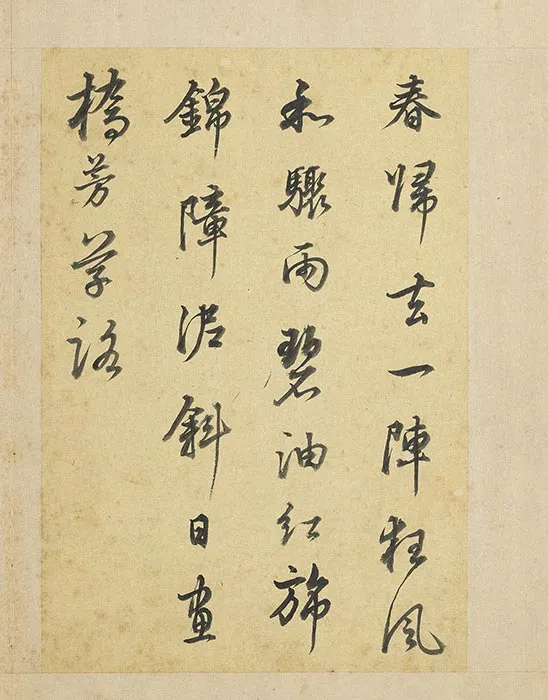 春歸去一陣狂風
和驟雨碧油紅旆
錦障泥斜日畫
橋芳草路